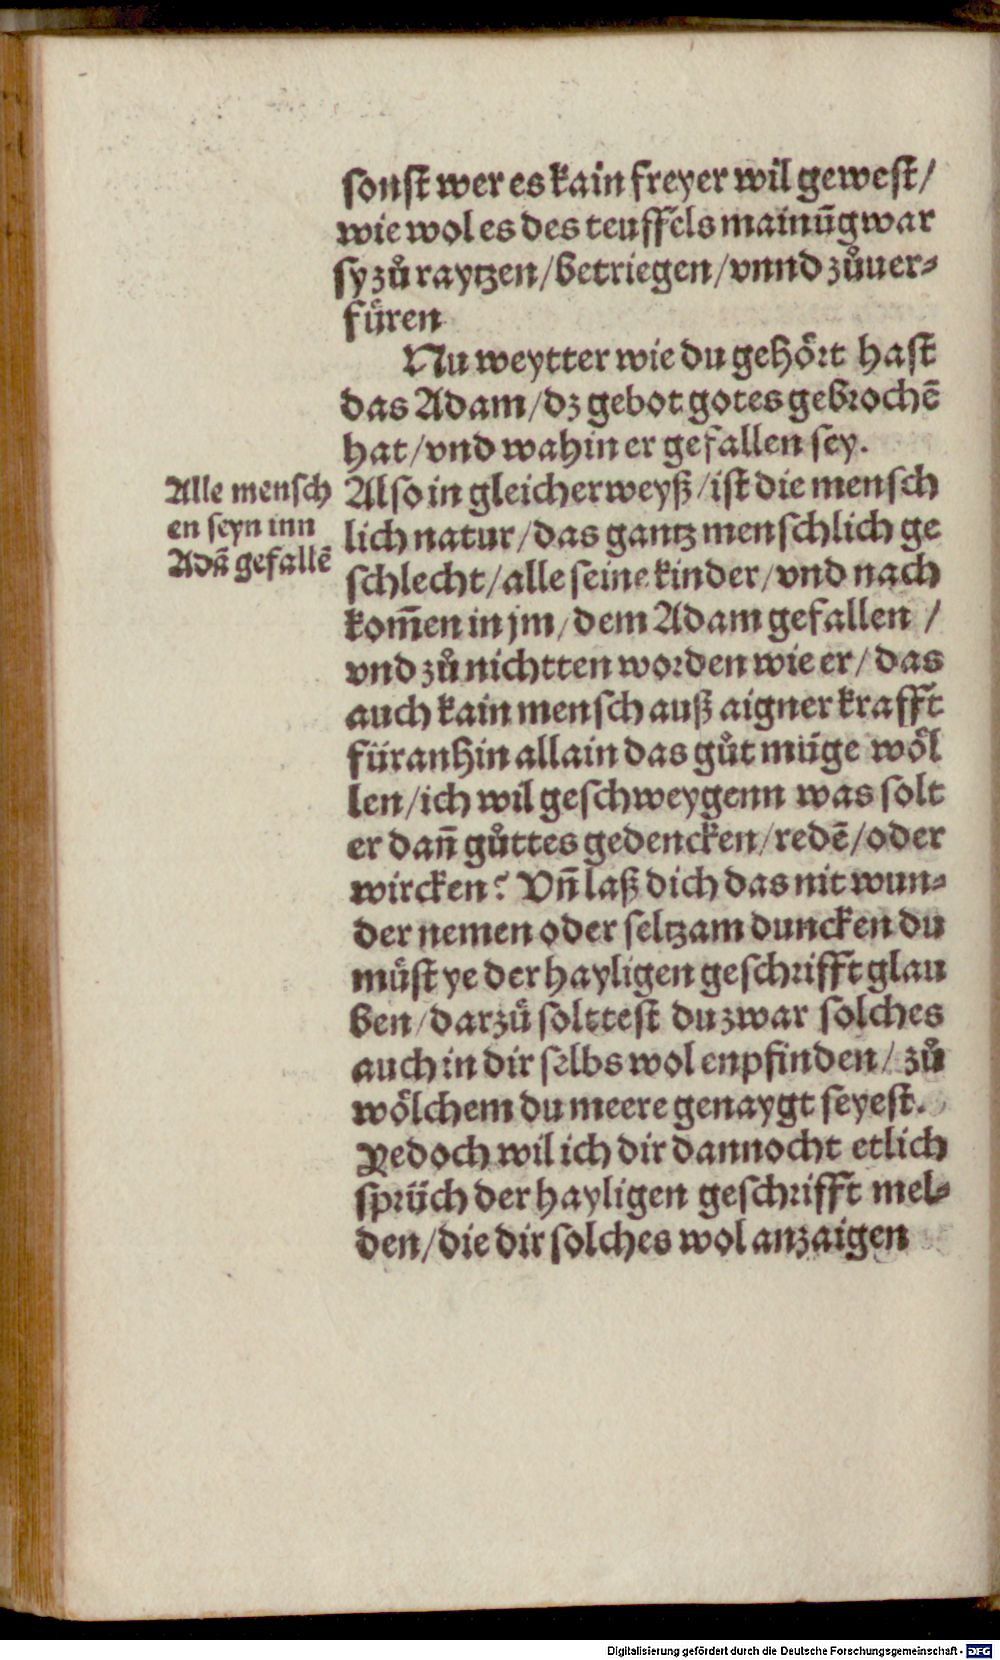 sonst wer es kain freyer wil gewest/
wie wol es des teuffels mainūg war
sy zů raytzen/betriegen/vnnd zůuer-
fůren
Nu weytter wie du gehört hast
das Adam/dz gebot gotes gebrochē
hat/vnd wahin er gefallen sey.
Alle mensch
en seyn inn
Adā gefallē
Also in gleicher weyß/ist die mensch
lich natur/das gantz menschlich ge
schlecht/alle seine kinder/vnd nach
kom̄en in jm/dem Adam gefallen /
vnd zů nichtten worden wie er/das
auch kain mensch auß aigner krafft
für anhin allain das gůt müge wöl
len/ich wil geschweygenn was solt
er dañ gůttes gedencken/redē/oder
wircken? Vñ laß dich das nit wun-
der nemen oder seltzam duncken du
můst ye der hayligen geschrifft glau
ben/darzů solttest du zwar solches
auch in dir selbs wol enpfinden/ zů
wölchem du meere genaygt seyest.
Yedoch wil ich dir dannocht etlich
sprüch der hayligen geschrifft mel-
den/die dir solches wol anzaigen
Digitalisierung gefördert durch die Deutsche Forschungsgemeinschaft - DFG